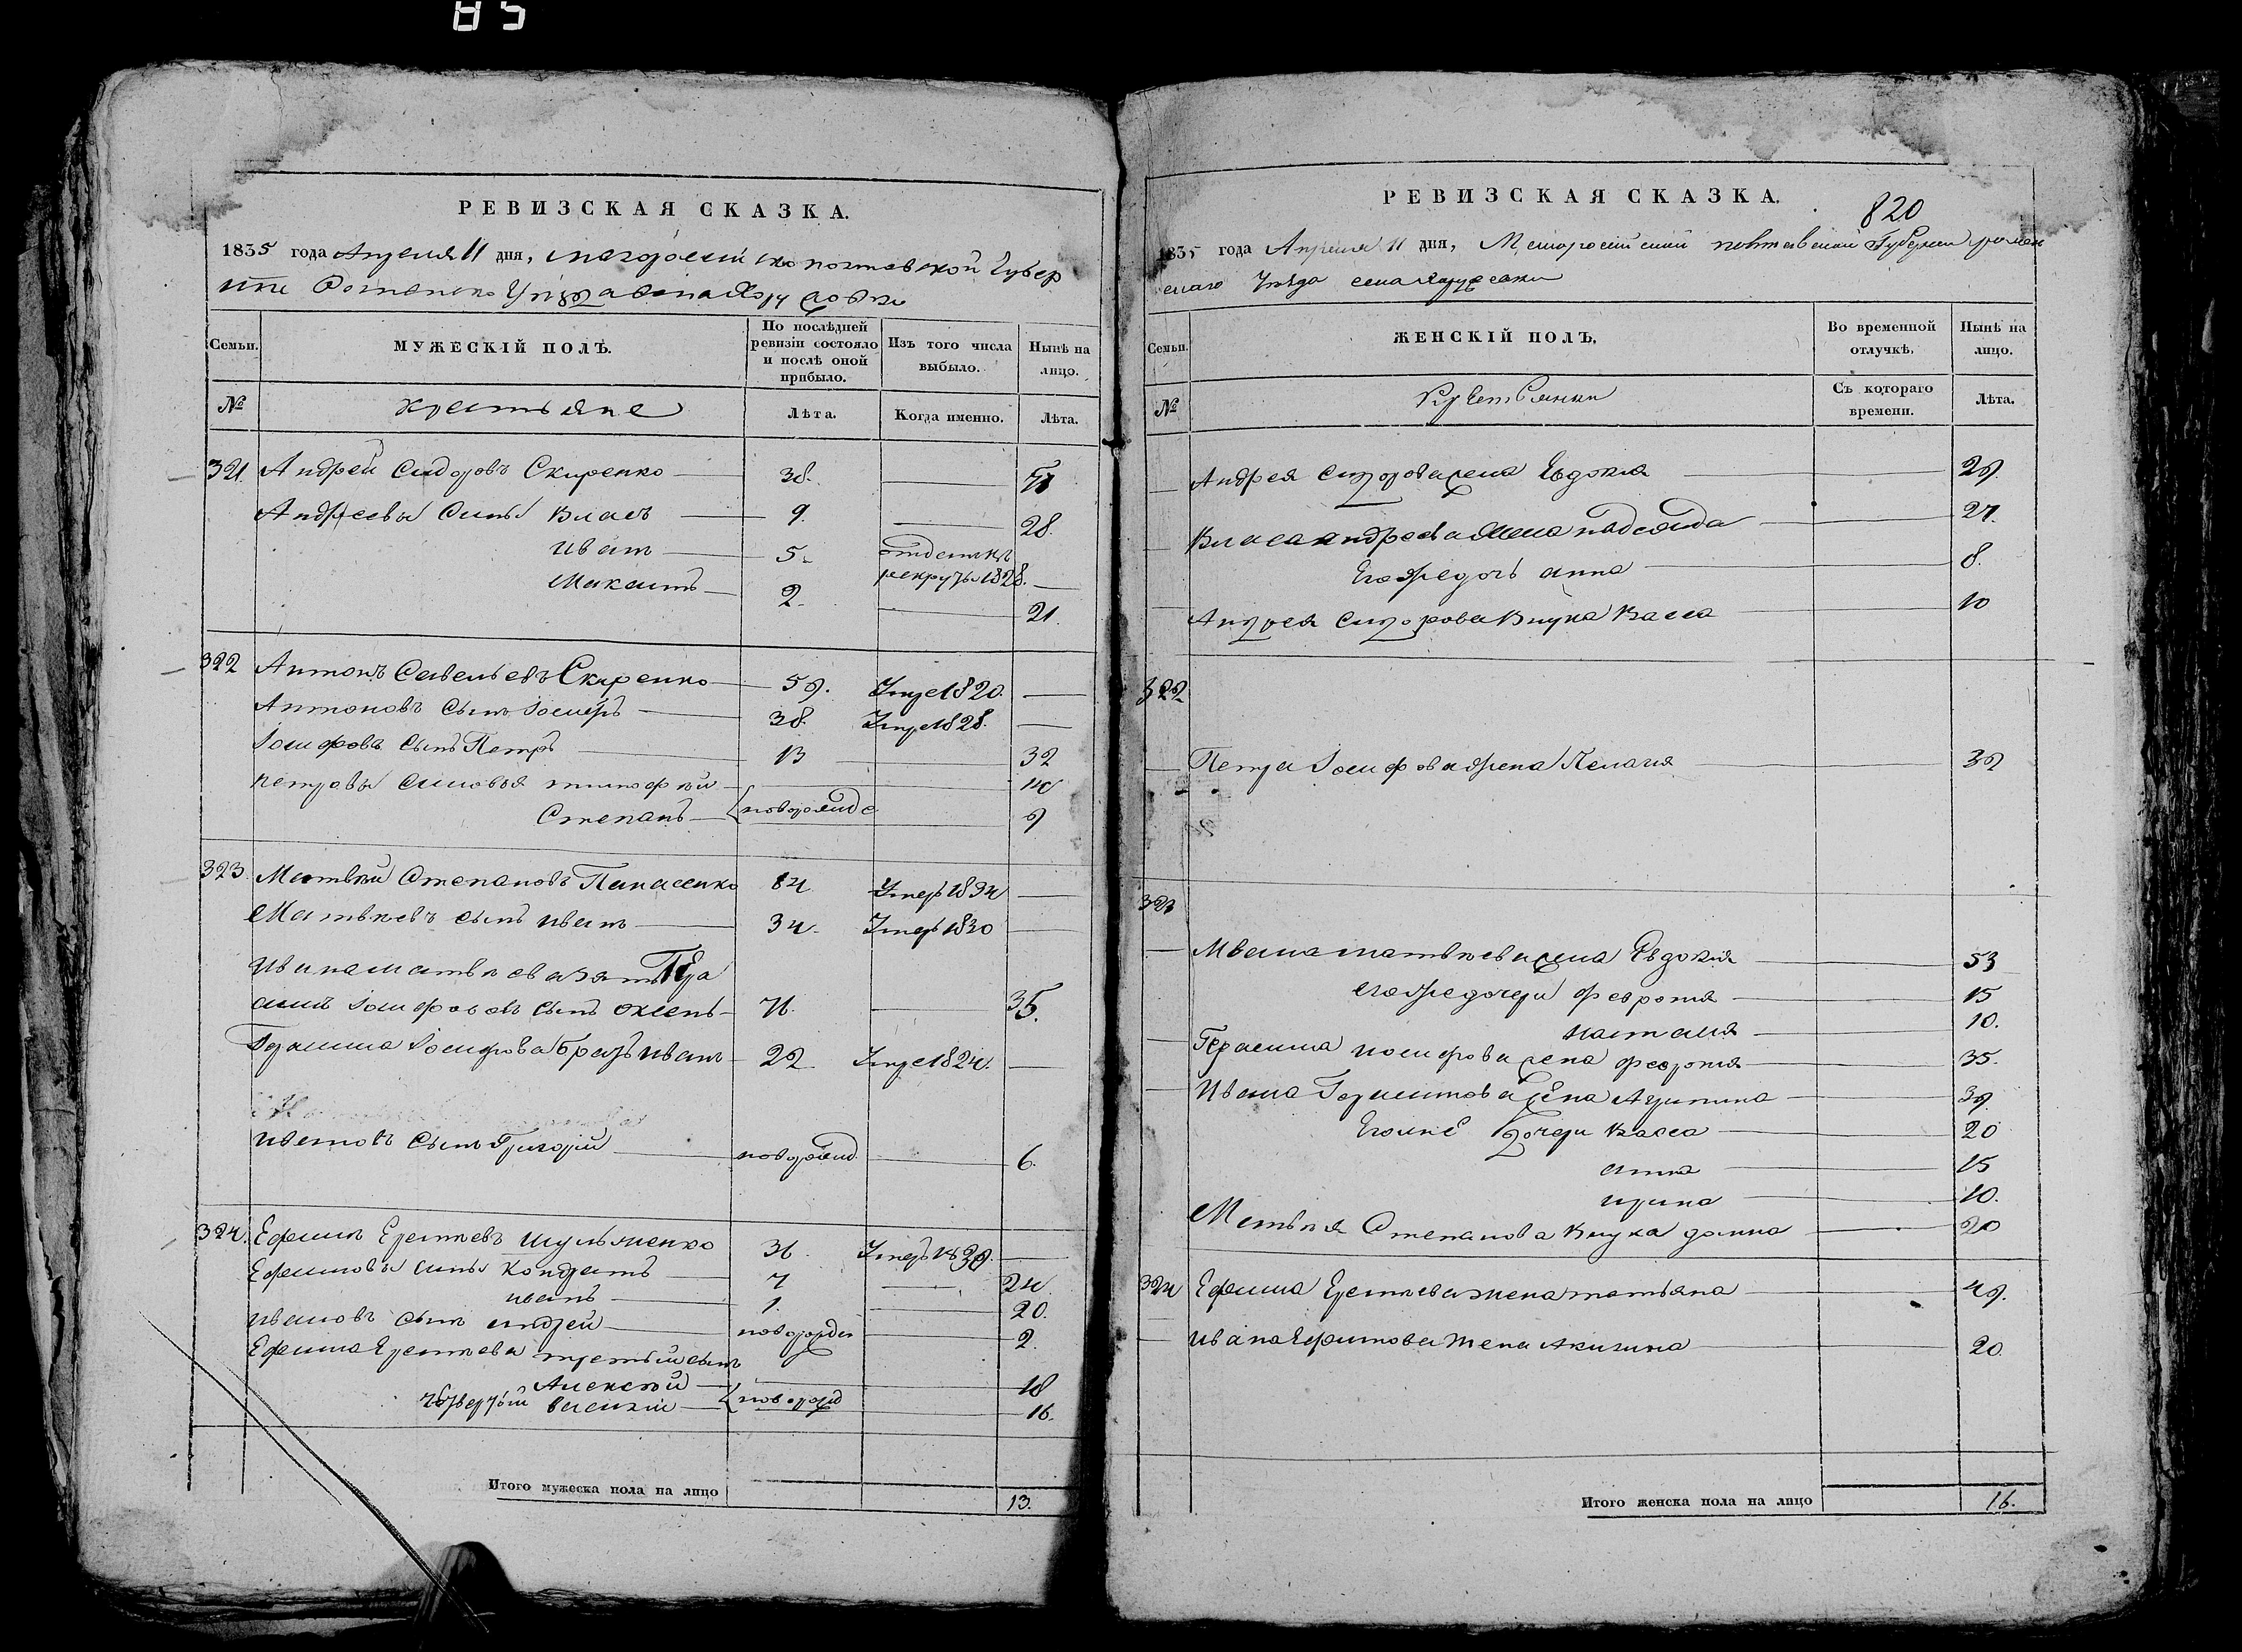 85
РЕВИЗСКАЯ СКАЗКА.
1835 года Апреля 11 дня, полтавской Губер
нiи
Семьи.
МУЖЕСКIЙ ПОЛЪ.
По послѣдней ревизiи состояло и послѣ оной прибыло.
Изъ того числа выбыло.
Нынѣ на лицо.
№
крестьяне
Лѣта.
Когда именно.
Лѣта.
321. Андрей Сидоровъ Скиренко 38.
Андреевы Сины Власъ 9. 28.
иванъ 5. рекруты 1828.
Максимъ 2. 21.
322 Антонъ Савельевъ Скиренко 59. Умре 1820.
Антоновъ сынъ Iосифъ 38. Умре 1828.
Iосифовъ сынъ Петръ 13 32
петровы синовья тимофѣй
Степанъ новорожде 9
323. Матвѣй Степановъ Панасенко 64 Умеръ 1834
Матвѣевъ сынъ иванъ 34. Умеръ 1830
ивана матвѣева зять Гера
симъ Iосифовъ сынъ 35.
Герасима Iосифова братъ иванъ 22. Умре 1824.
ивановъ сынъ Григорiй новорожд. 6.
324. Ефимъ шульженко 36. Умеръ 1830.
Ефимовы сины Кондратъ 7 24
иванъ 1. 20.
ивановъ сынъ андрей 2.
Ефима третiй сынъ
Алексѣй 18
четвертый василiй новорожд 16.
Итого мужеска пола на лицо 13.
820
РЕВИЗСКАЯ СКАЗКА.
1835 года Апреля 11 дня, Малоросiйской полтавской Губернiи ромен
скаго Уѣзда села
Семьи.
ЖЕНСКIЙ ПОЛЪ.
Во временной отлучкѣ.
Нынѣ на лицо.
№
Крестьянки
Съ котораго времени.
Лѣта.
Андрея Сидорова жена Евдокия 29.
Власа андреева жена надежда 27.
Его же дочь анна 8.
Андрея Сидорова внука Васса 10
322
Петра Iосифова жена Пелагия 32
323
Ивана матвѣева жена Евдокия 53
его же дочери феврония 15
наталия 10.
Герасима иосифова жена феврония 35.
Ивана жена Агрипина 39.
дочери Васса 20
анна 15
ирина 10.
Матвѣя Степанова внука домна 20
324 Ефима жена татьяна 49.
ивана Ефимова жена Акилина 20.
Итого женска пола на лицо 16.